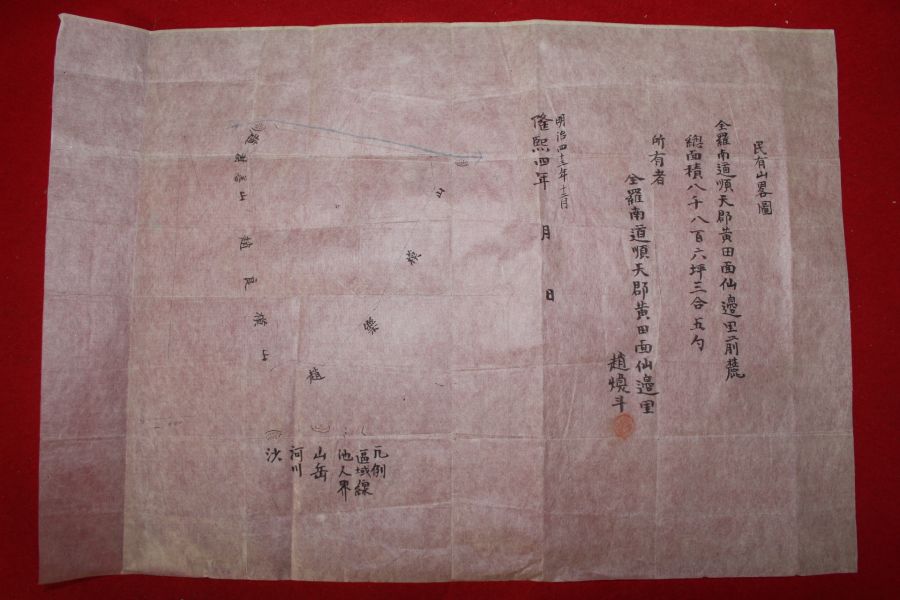 民有山畧圖
全羅南道順天郡黃田面仙邊里前麓
總面積八千八百六坪三合五勺
所有者
全羅南道順天郡黃田面仙邊里
趙煥斗
明治四十三年十二月
隆熙四年 月 日
山
趙
趙良
山
凡例
區域線
他人界
山岳
河川